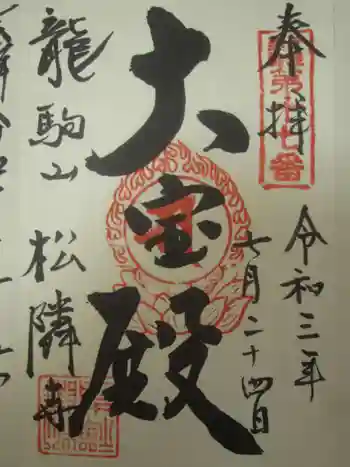 奉拝
令和三年
七月二十四日
大宝殿
龍駒山
松隣寺